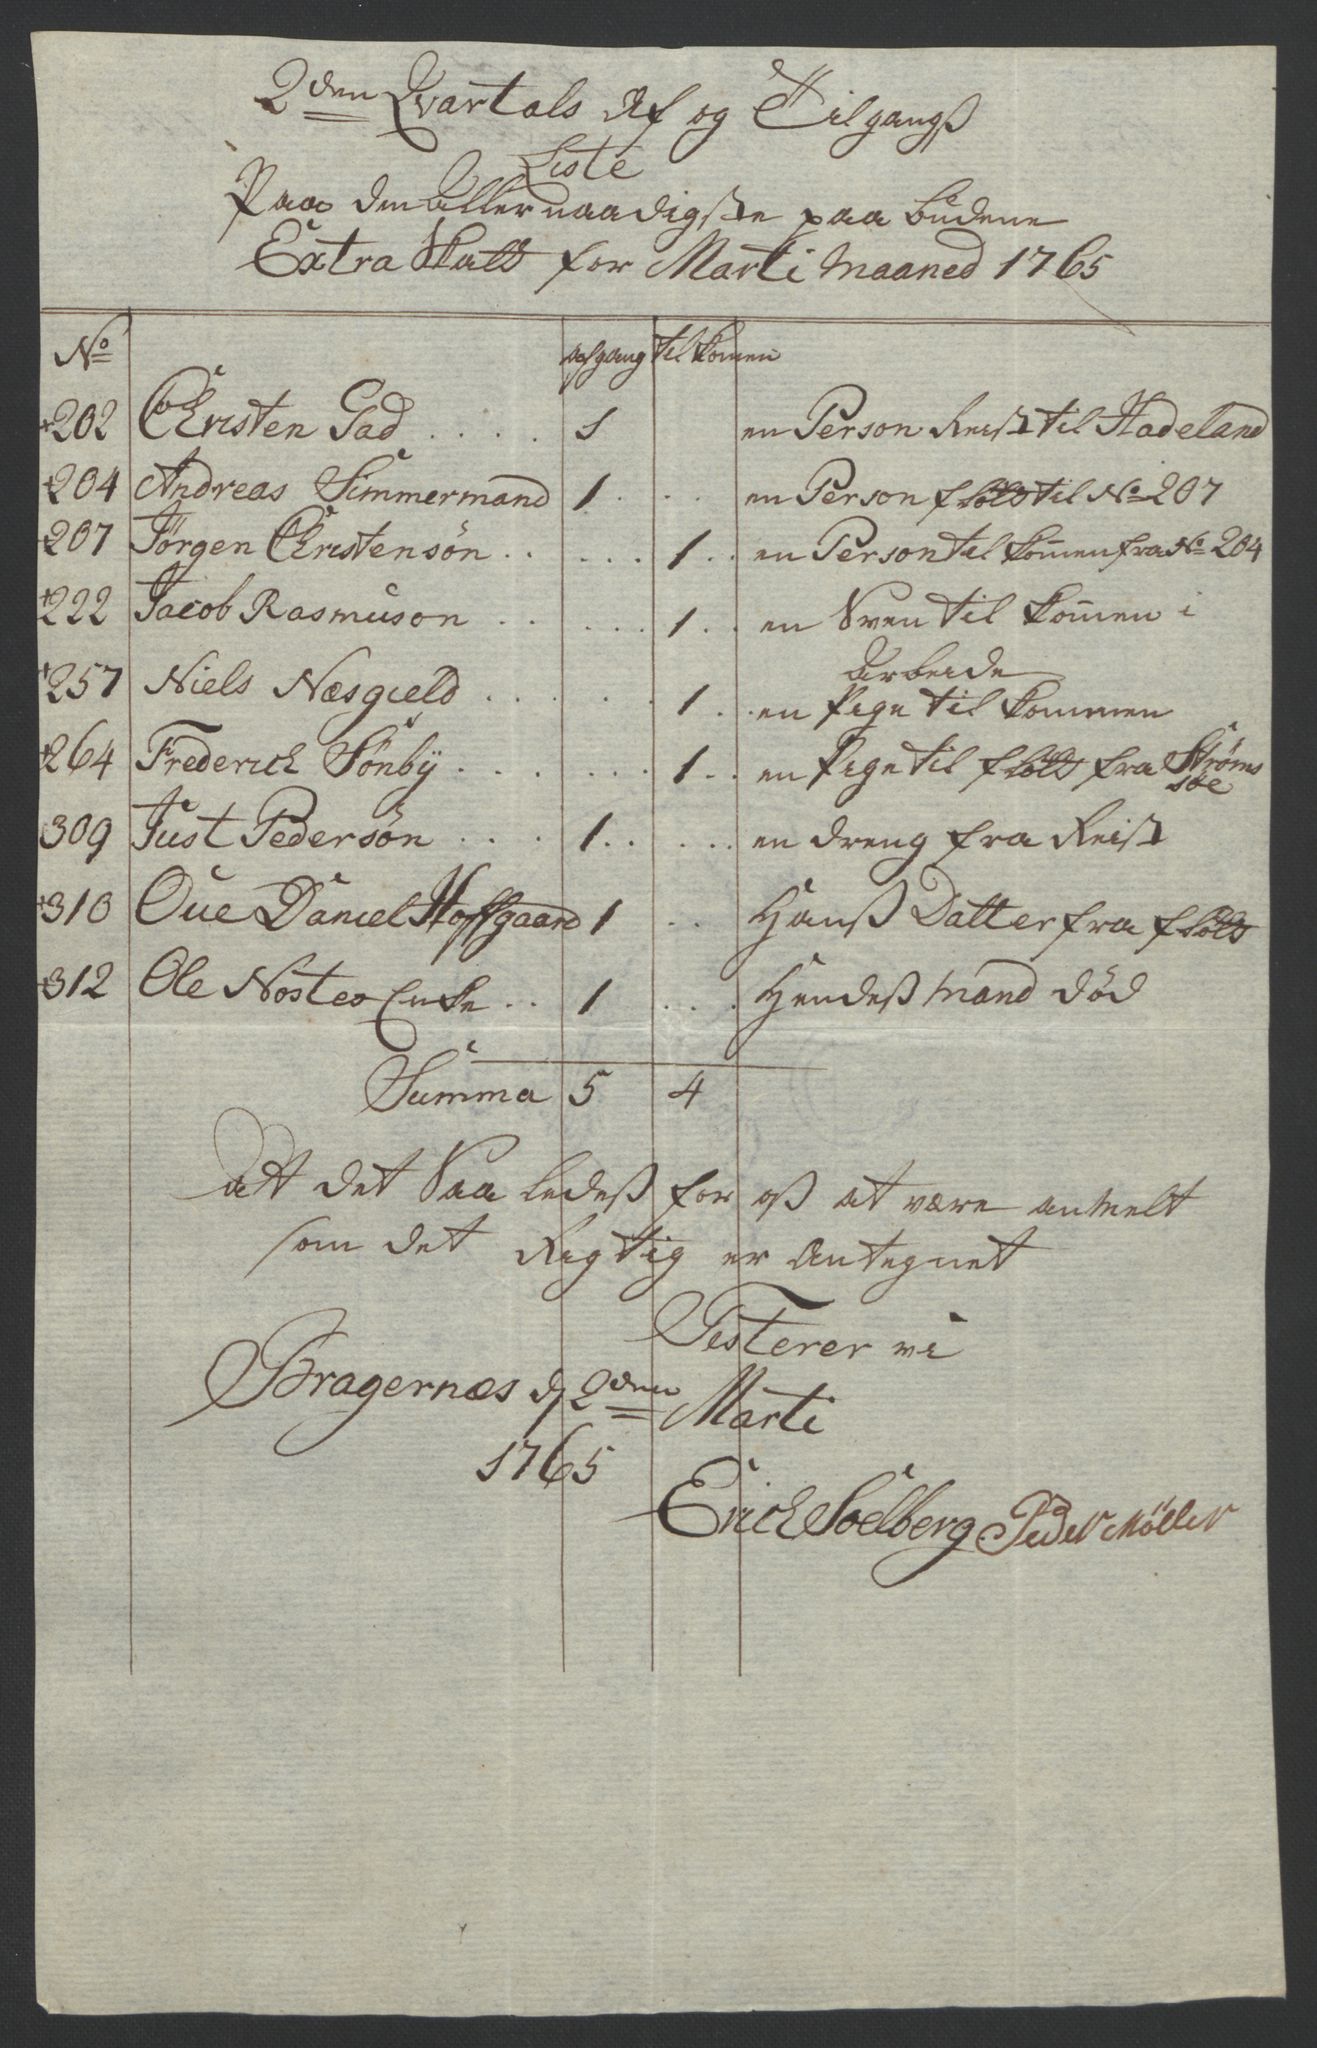 2den Qvartals Af og Tilgangs
Liste
Paa den Allernaadigste paa budene
Extra Skatt for Marti Maaned 1765
No afgang til komen
202 Christen Gad . . . . . 1 en Person Reist til Hadeland
204 Andreas Simmermand 1 . . . en Person flött til No 207
207 Jörgen Christensön . . . . . 1 . . en Person til kommen fra No 204
222 Jacob Rasmuson . . . . . 1 . . en Sven til kommen i
Arbeide
257 Niels Næsgield . . . . . . 1 . . en Pige til kommen
264 Frederich Sönbÿ . . . . . . . 1 . . en Pige til flött fra Ströms
söe
309 Just Pedersön . . . 1 . . . . . en dreng fra Reist
310 Oue Daniel Hoffgaard 1 . . Hanss Datter fra flött
312 Ole Nostes Enke . . 1 . . . Hendess Mand död
Summa 5 4
att det Saa ledess for oss at være anmelt
som det Rigtig er Antegnet
Testerer vi
Bragernæs d 2den Marti
1765
Erich Soelberg Peder Möller